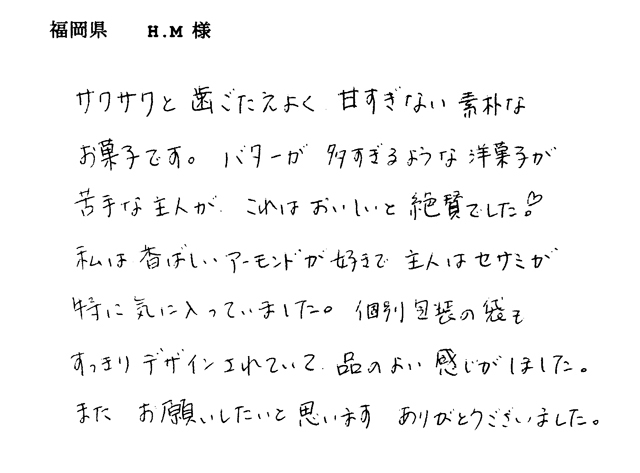 福岡県　　H.M 様
サクサクと 歯ごたえよく 甘すぎない 素朴な
お菓子です。 バターが 多すぎるような 洋菓子が
苦手な主人が、これは おいしいと 絶賛でした♡
私は 香ばしい アーモンドが 好きで 主人は セサミが
特に 気に入っていました。 個別包装の袋も
すっきり デザインされていて 品のよい 感じがしました。
また お願いしたいと 思います ありがとうございました。